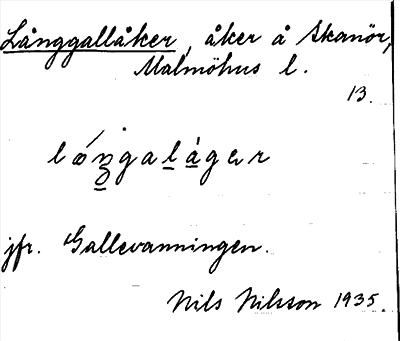 Långgallåker, åker å Skanör,
Malmöhus l.
13.
jfr. Gallevanningen.
Nils Nilsson 1935.